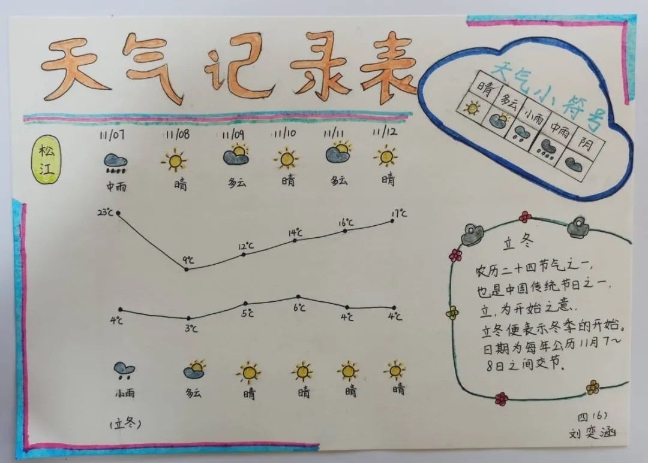 天气记录表
天气小符号
晴 多云 小雨 中雨 阴
松江
11/07 11/08 11/09 11/10 11/11 11/12
中雨 晴 多云 晴 多云 晴
23℃ 9℃ 12℃ 14℃ 16℃ 17℃
4℃ 3℃ 5℃ 6℃ 4℃ 4℃
小雨 多云 晴 晴 晴 晴
(立冬)
立冬
农历二十四节气之一,
也是中国传统节日之一,
立,为开始之意.
立冬便表示冬季的开始。
日期为每年公历11月7~
8日之间交节.
四(6)
刘奕涵